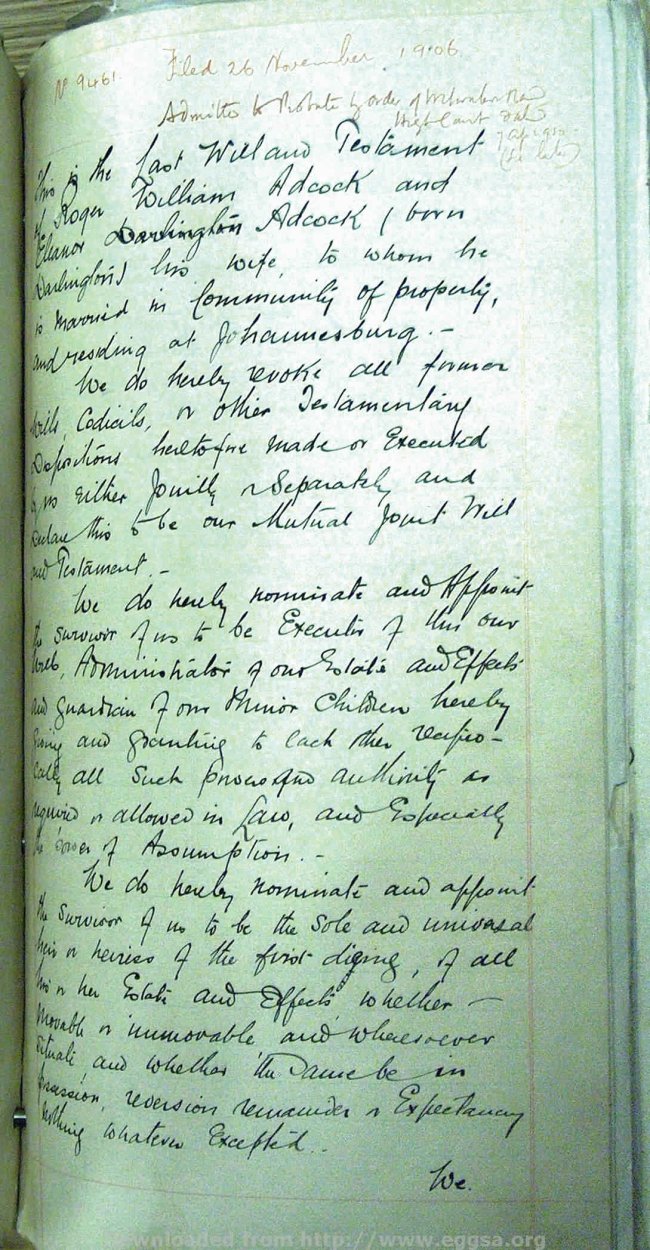 No 9461
Filed 26 November 1906
Admitted to Probate by order of Witwatersrand
High Court
7 Apr 1910
This is the Last Will and Testament
of Roger William Adcock and
Eleanor Darlington Adcock (born
Darlington) his wife, to whom he
is married in Community of property,
and residing at Johannesburg. –
We do hereby revoke all former
Wills, Codicils, or other Testamentary
Dispositions heretofore made or Executed
by us either Jointly or Separately and
Declare this to be our Mutual Joint Will
and Testament. –
We do hereby nominate and Appoint
the Survivor of us to be Executor of this our
Will, Administrator of our Estate and Effects
and guardian of our Minor Children hereby
giving and granting to each other recipro-
cally all Such powers and authority as
required or allowed in Law, and Especially
the power of Assumption. –
We do hereby nominate and appoint
the Survivor of us to be the Sole and universal
heir or heiress of the first dieing, of all
his or her Estate and Effects whether –
Movable or immovable and wheresoever
Situate and whether the Same be in
possession, reversion remainder or Expectancy
nothing whatever Excepted.
We.
wnloaded from http://www.eggsa.org